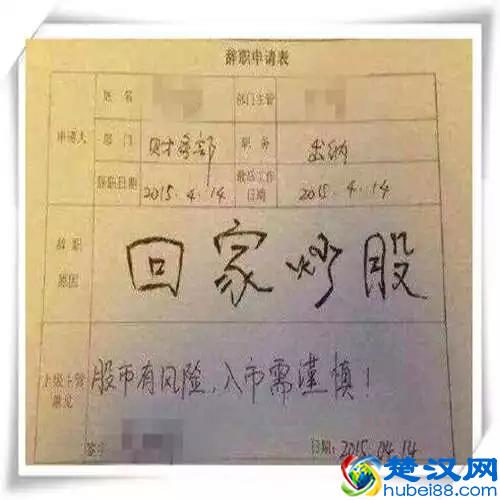 辞职申请表
姓名 部门主管
申请人 部门 财务部 职务 出纳
辞职日期 2015.4.14 最后工作日期 2015.4.14
辞职原因 回家炒股
上级主管意见 股市有风险,入市需谨慎!
签字 日期: 2015.04.14
楚汉网
hubei88.com